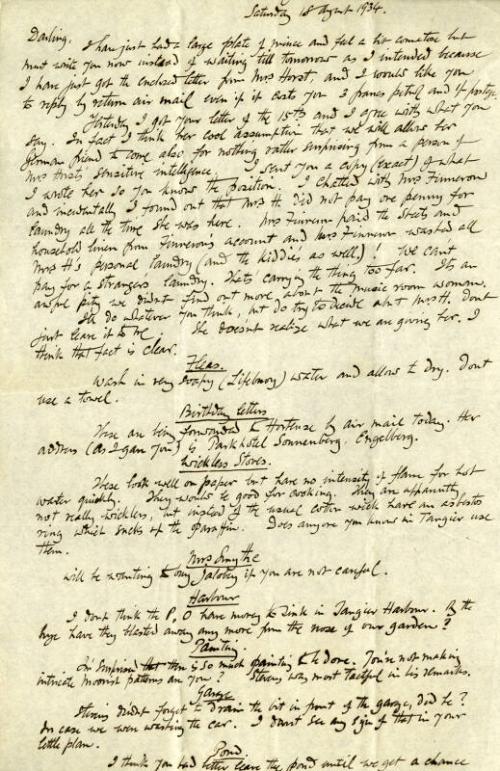 Saturday 18 August 1934.
Darling. I have just had a large plate of prunes and feel a bit comatose but
must write you now instead of waiting till tomorrow as I intended because
I have just got the enclosed letter from Mrs Horst, and I would like you
to reply by return air mail even if it costs you 3 francs petrol and postage.
Yesterday I got your letter of the 15th and I agree with what you
say. In fact I think her cool assumption that we will allow her
German friend to come also for nothing rather surprising from a person of
Mrs Horst's sensitive intelligence. I sent you a copy (exact) of what
I wrote her so you know the position. I chatted with Mrs Finneron
and incidentally I found out that Mrs H did not pay one penny for
laundry all the time she was here. Mrs Finneron paid the sheets and
household linen from Finnerons account and Mrs Finneron washed all
Mrs H's personal laundry (and the kiddies as well)! We can't
pay for a strangers laundry. Thats carrying the thing too far. Its an
awful pity we didnt find out more about the music room woman.
I'll do whatever you think, but do try to decide about Mrs H. Dont
just leave it to me. She doesnt realize what we are giving her. I
think that fact is clear.
Fleas.
Wash in very soapy (Lifebuoy) water and allow to dry. Dont
use a towel.
Birthday letters
These are being forwarded to Hortense by air mail today. Her
address (as I gave you) is Parkhotel Sonnenberg. Engelberg.
Wickless Stoves.
These look well on paper but have no intensity of flame for hot
water quickly. They would be good for cooking. They are apparently
not really wickless, but instead of the usual cotton wick have an asbestos
ring which sucks up the paraffin. Does anyone you know in Tangier use
them.
Mrs Smythe
will be wanting to buy Jalobey if you are not careful.
Harbour
I dont think the P, O have money to sink in Tangier Harbour. By the
bye have they blasted away any more from the nose of our garden?
Painting.
Im surprised that there is so much painting to be done. You're not making
intricate Moorish patterns are you? Stevens was most tactful in his remarks.
Garage
Stevens didnt forget to drain the bit in front of the garage, did he?
In case we were washing the car. I dont see any sign of that in your
little plan.
Pond.
I think you had better leave the pond until we get a chance